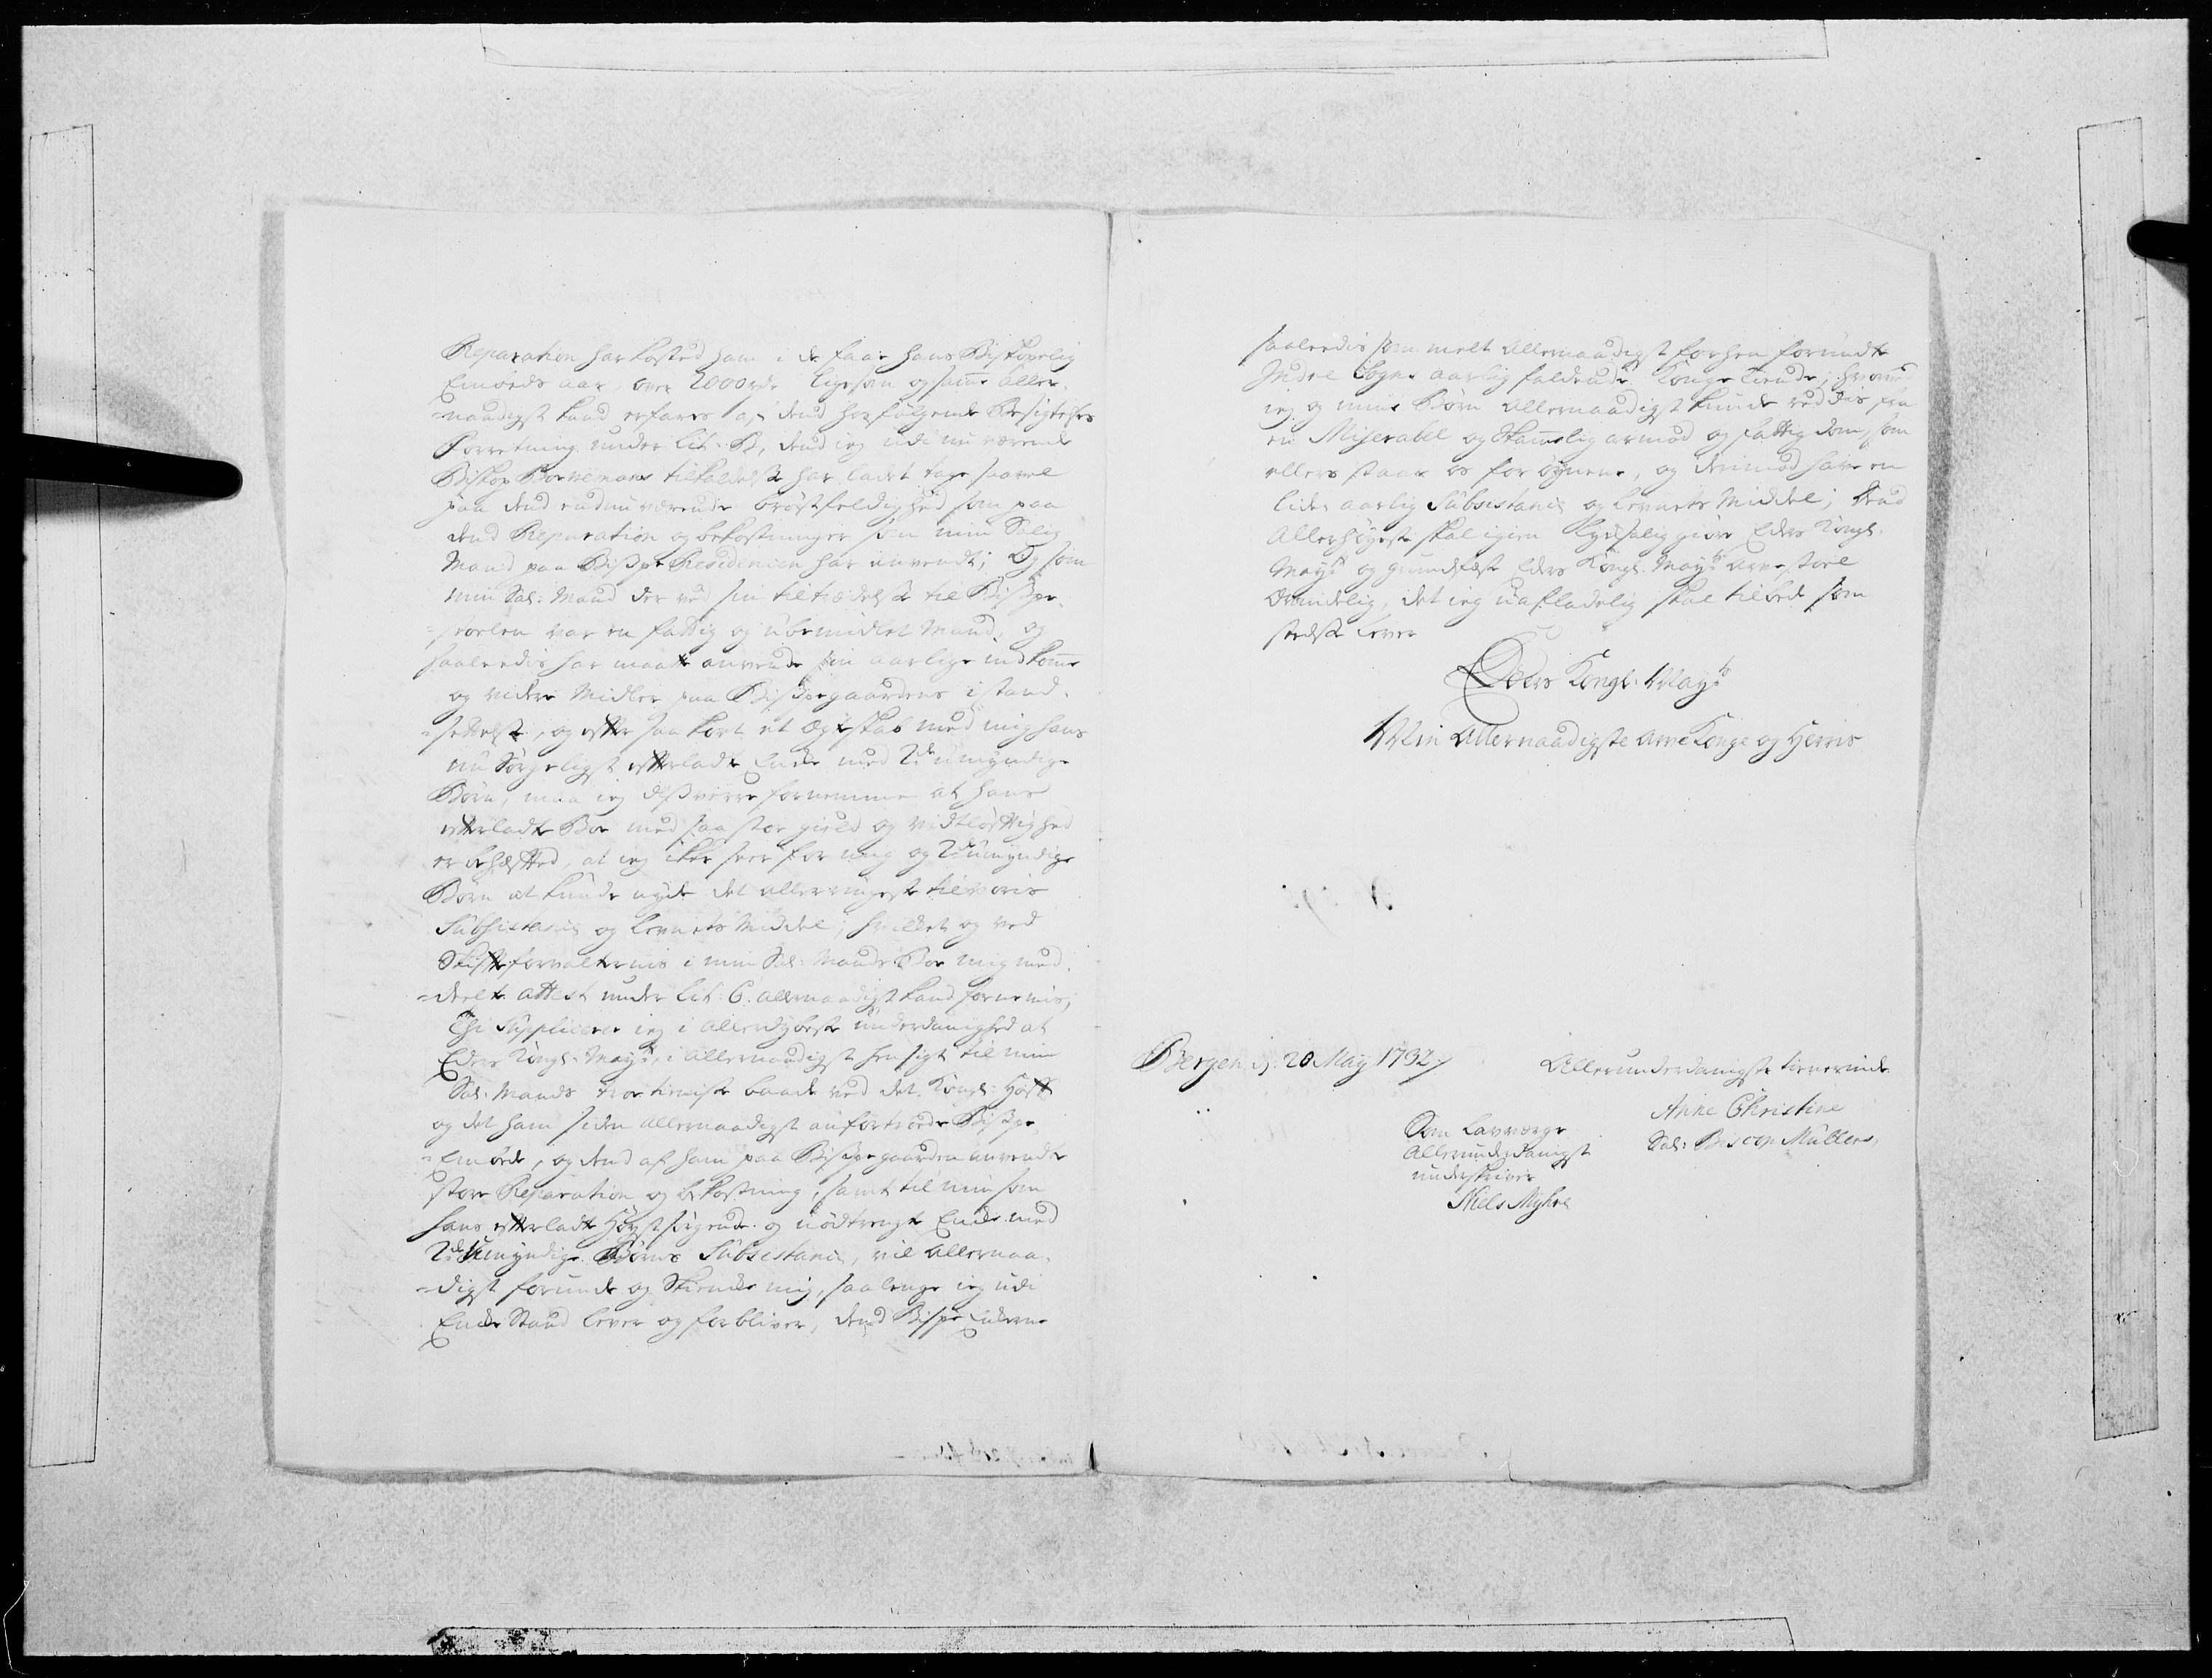 Reparation har kosted ham i de faae hans Biskopelig
Embeds aar, over 2000 rdr. ligesom og samme aller-
=naadigst kand erfares af dend hosfølgende Besigtelses
Forretning under Lit: B, dend ieg udi nu værende
Biskop Bornemans tilkaldelse har ladet tage saavel
paa dend endnu værende brøstfeldighed som paa
dend Reparation og bekostninger som min Salig
Mand paa Bispe Residencien har anvendt; Og som
min Sal: Mand der ved sin tiltrædelse til Bispe-
=stoelen var en fattig og ubemidlet Mand, og
saaleedis har maatte anvende sin aarlige indkomme
og videre Midler paa Bispegaardens istand-
=settelse, og efter saa kort et Ægteskab med mig hans
nu Sørgeligst efterladte Encke med 2de umyndige
Børn, maa ieg dessverre fornemme at hans
efterladte Boe med saa stor gield og vidtløftighed
er behæfted, at ieg ikke seer for mig og 2de umyndige
Børn at kunde nyde det allerringeste til voris
Subsistance og Levnets Middel; hvilket og ved
Skifteforvalternis i min Sal: Mands Boe mig med-
=deelte attest under Lit: C. allernaadigst kand fornemmis;
Thi Supplicerer ieg i allerdybeste underdanighed at
Eders Kongl: Mayts, i allernaadigst hensigt til min
Sal: Mands troe tieniste baade ved det Kongl: Hoff
og det ham siden allernaadigst anfortroede Bispe-
=Embede, og dend af ham paa Bispegaarden anvendte
store Reparation og bekostning, samt til min som
hans efterladte Høystsørgende og nødtrengte Encke med
2de Umyndige Børns Subsistance, vil allernaa-
=digst forunde og Skiencke mig, saalenge ieg udi
Encke Stand lever og forbliver, dend Bispe Enckerne
saaledis som melt allernaadigst forhen forundte
Indre Sogns aarlig faldende Konge Tiende; hvorved
ieg og mine Børn allernaadigst kunde reddes fra
en Miserabel og Skammelig armod og fattigdom, som
ellers staar os for øynene, og derimod have en
liden aarlig Subsistance og Levnets Middel; Dend
Allerhøyeste skal igien Lycksalig giøre Eders Kongl:
Mayts og grundfæste Eders Kongl: Mayts arvestoel
Uendelig, det ieg uafladelig skal tilbede som
stedse lever
Eders Kongl: Mayts
Min Allernaadigste Arve Konge og Herris
Bergen d: 20 May 1732
Allerunderdanigste tienerinde
Anne Christine
Sal: Biscop Müllers
Som Lavværge
Allerunderdanigst
underskriver
Niels Myhre